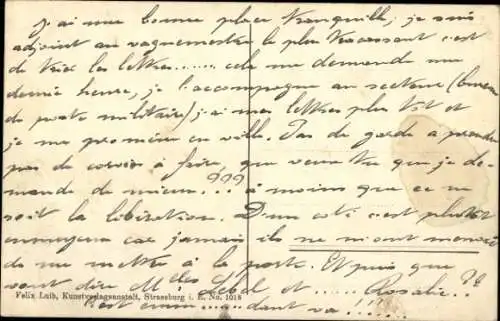 j'ai une bonne place tranquille, je suis
adjoint au vaguemestre le plus tracassant c'est
de trier les lettres....... cela me demande une
demie heure, je l'accompagne au secteur (bureau
de poste militaire) j'ai mes lettres plus tôt et
je me promène en ville. Pas de garde à prendre
pas de corvées à faire, que veux tu que je de-
mande de mieux... ??? à moins que ce ne
soit la libération. D'un côté c'est plutôt
ennuyeux car jamais ils ne m'ont menacé
de me mettre à la porte. Et puis que
vont dire Mlles Lebel et ..... Rosalie ??
Felix Luib, Kunstverlagsanstalt, Strassburg i. E. No. 1018
C'est ennu..... dant va !!!!!